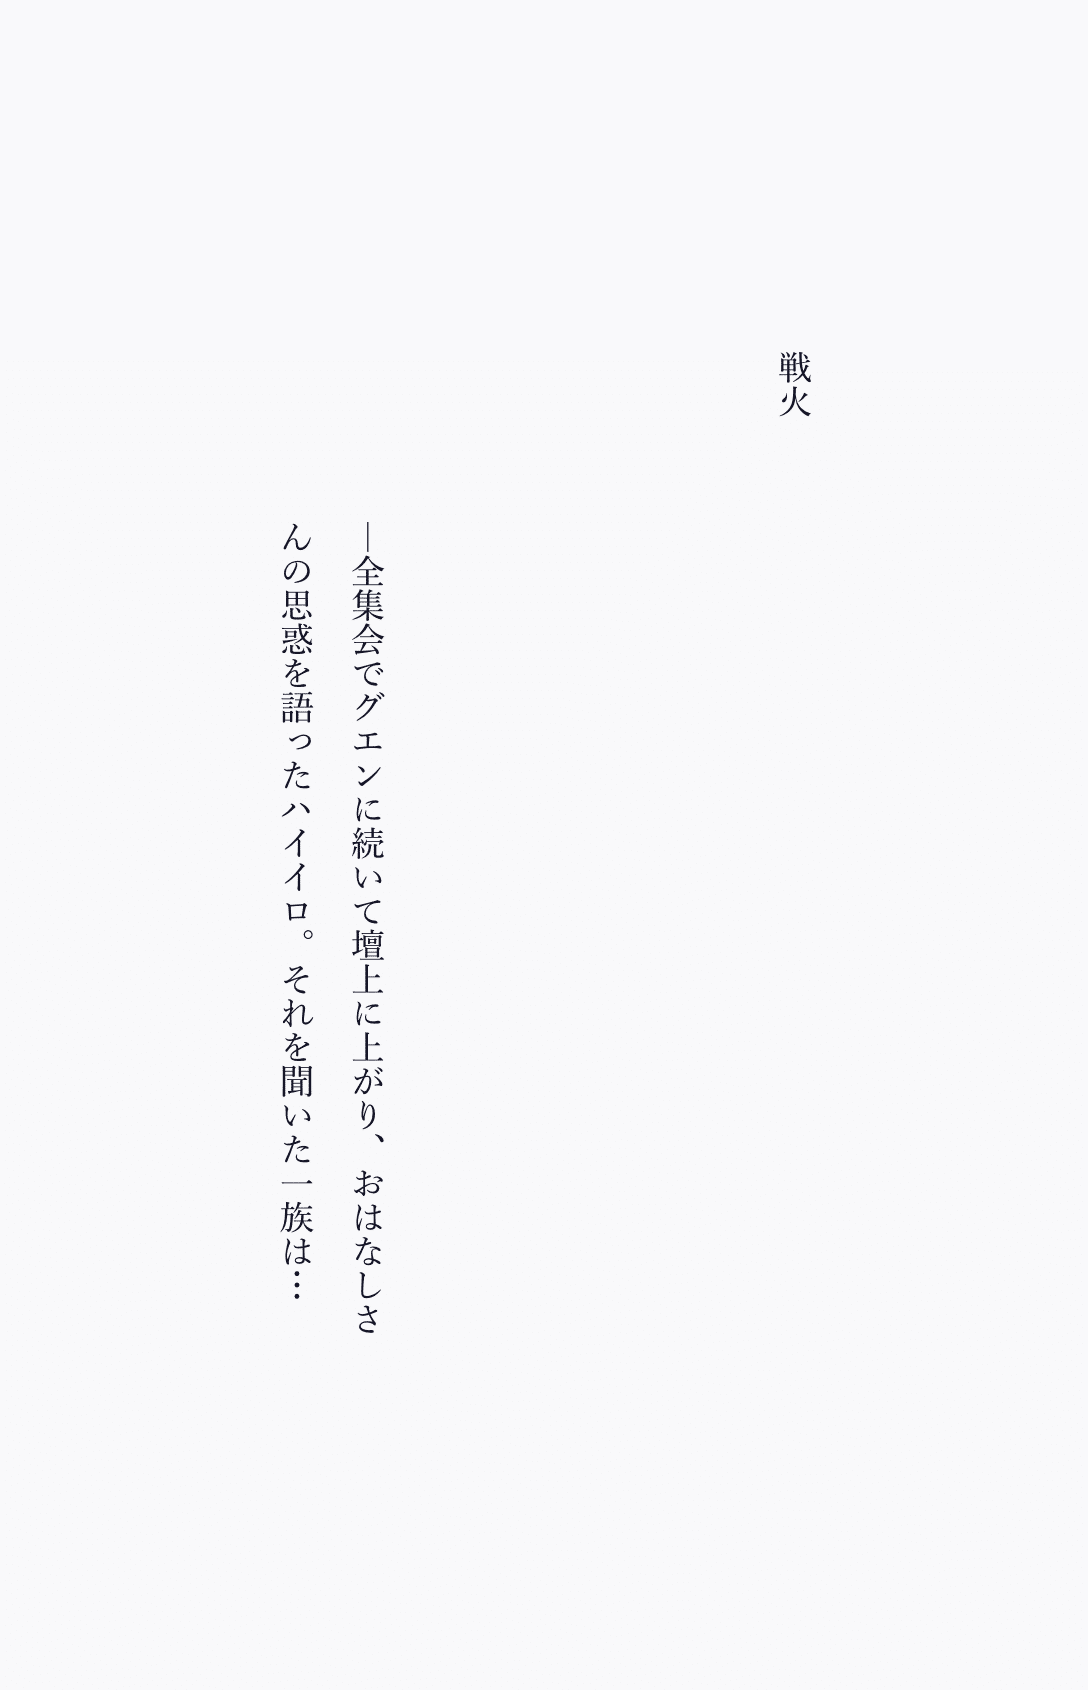 戦火
―全集会でグエンに続いて壇上に上がり、おはなしさ
んの思惑を語ったハイイロ。それを聞いた一族は…